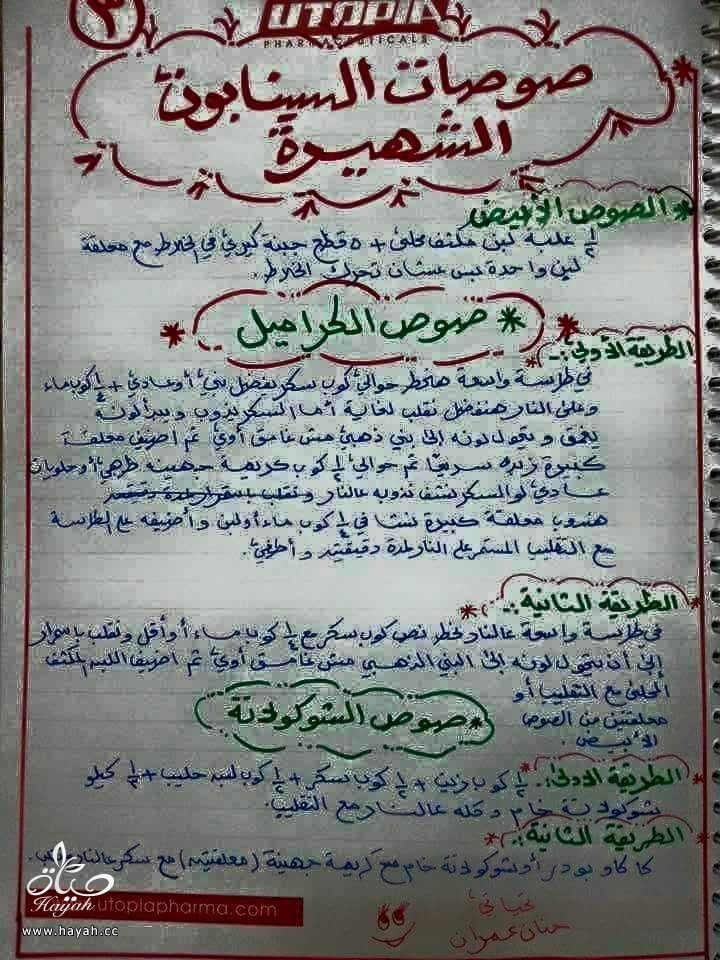 ٣
UTOPIA
PHARMACEUTICALS
صوصات السينابون
الشهيرة
* الصوص الأبيض
½ علبة لبن مكثف محلى + ٥ قطع جبنة كيري في الخلاط مع معلقة
لبن واحدة بس عشان تحرك الخلاط.
* صوص الكراميل *
الطريقة الأولى :-
في طاسة واسعة هنحط حوالي كوب سكر يفضل بني أو عادي + ¼ كوب ماء
وعلى النار هنفضل نقلب لغاية أما السكر يدوب ويبدأ لونه
يغمق ويتحول لونه إلى بني ذهبي مش غامق أوي ثم اضيف معلقة
كبيرة زبدة سريعًا ثم حوالي ½ كوب كريمة جهينة طهي أو حلويات
عادي لو السكر نشف ندوبه عالنار ونقلب باستمرار لمدة دقيقتين
هندوب معلقة كبيرة نشا في ¼ كوب ماء أو لبن وأضيفه على الطاسة
مع التقليب المستمر على النار لمدة دقيقتين وأطفي.
الطريقة الثانية :-
في طاسة واسعة عالنار نحط نص كوب سكر مع ¼ كوب ماء أو أقل ونقلب باستمرار
إلى أن يتحول لونه إلى البني الذهبي مش غامق أوي ثم اضيف اللبن المكثف
المحلى مع التقليب أو
معلقتين من الصوص
الأبيض.
* صوص الشوكولاتة
* الطريقة الأولى :- ½ كوب زيت + ½ كوب سكر + ½ كوب لبن حليب + ¼ كيلو
شوكولاتة خام وكله عالنار مع التقليب.
* الطريقة الثانية :-
كاكاو بودر أو شوكولاتة خام مع كريمة جهينة (معلقتين) مع سكر عالنار
تحياتي
حنان عمران
utopiapharma.com
حياة
Hayah
www.hayah.cc